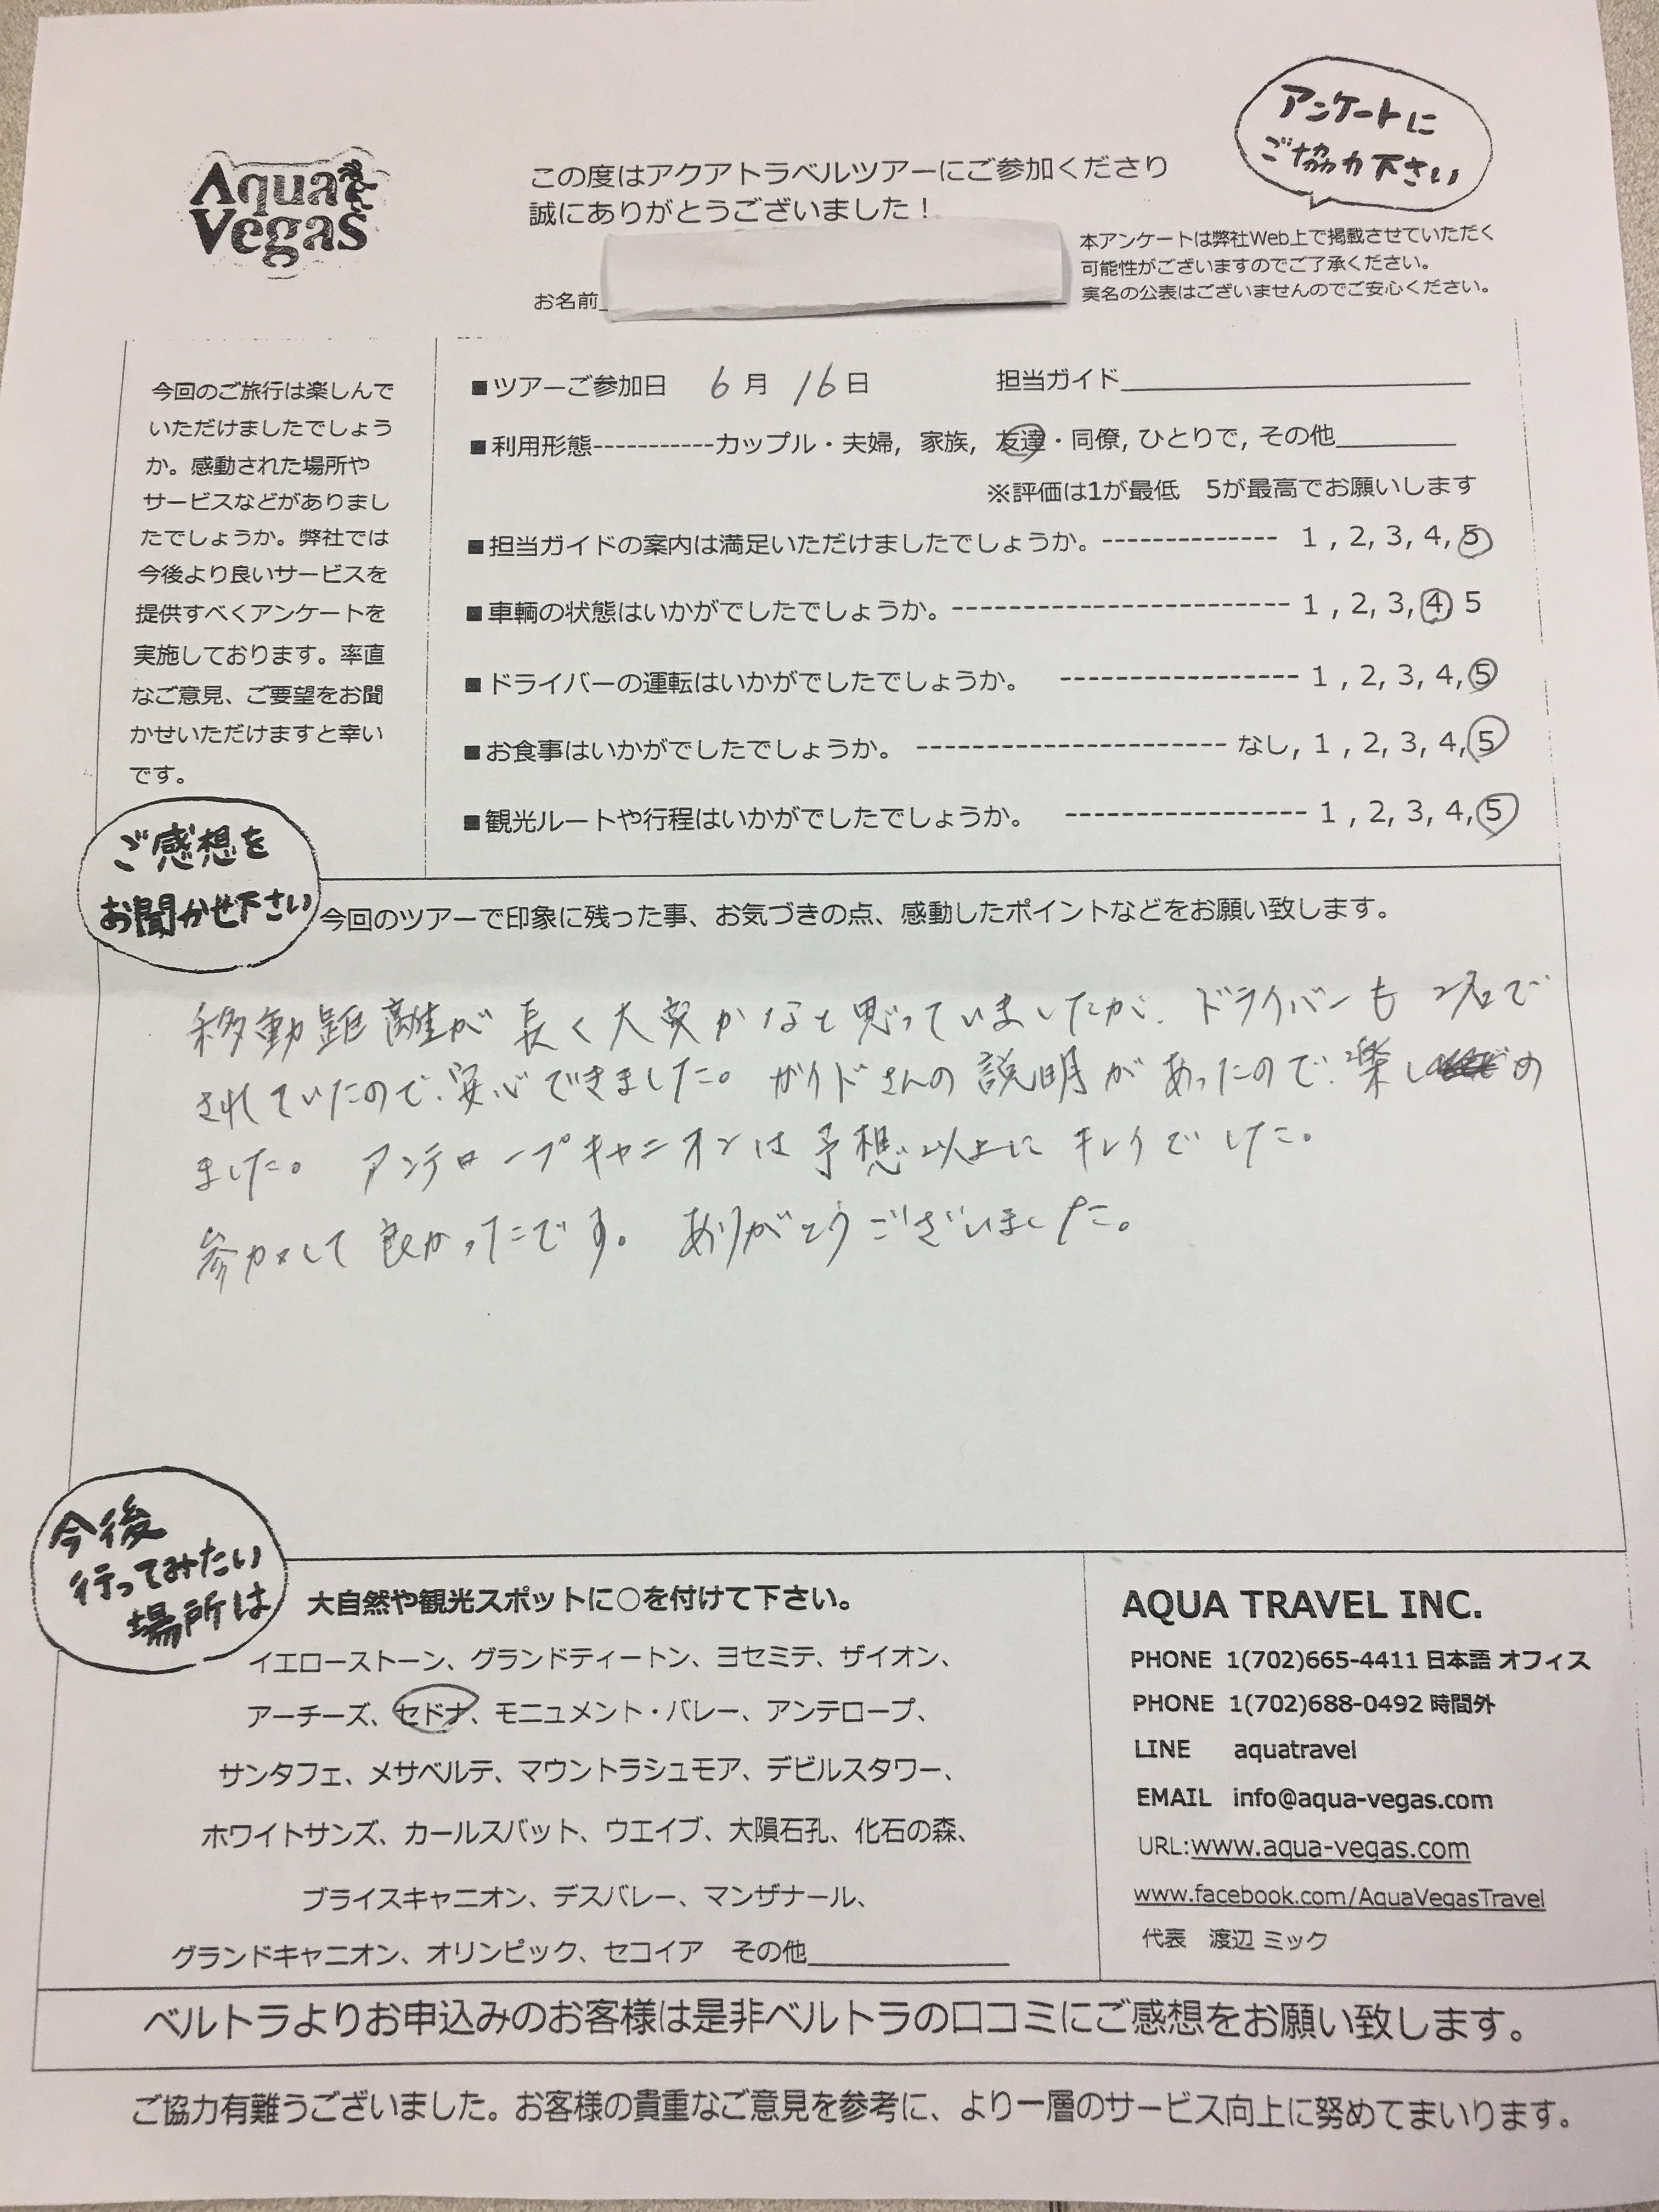 アンケートに
ご協力下さい
Aqua
Vegas
この度はアクアトラベルツアーにご参加くださり
誠にありがとうございました！
お名前
本アンケートは弊社Web上で掲載させていただく
可能性がございますのでご了承ください。
実名の公表はございませんのでご安心ください。
今回のご旅行は楽しんで
いただけましたでしょう
か。感動された場所や
サービスなどがありまし
たでしょうか。弊社では
今後より良いサービスを
提供すべくアンケートを
実施しております。率直
なご意見、ご要望をお聞
かせいただけますと幸い
です。
■ツアーご参加日 6月 16日 担当ガイド
■利用形態-----------カップル・夫婦, 家族, 友達・同僚, ひとりで, その他
※評価は1が最低 5が最高でお願いします
■担当ガイドの案内は満足いただけましたでしょうか。-------------- 1 , 2, 3, 4, 5
■車輌の状態はいかがでしたでしょうか。--------------------------- 1 , 2, 3, 4 5
■ドライバーの運転はいかがでしたでしょうか。 ------------------- 1 , 2, 3, 4, 5
■お食事はいかがでしたでしょうか。 ------------------------ なし, 1 , 2, 3, 4, 5
■観光ルートや行程はいかがでしたでしょうか。 ------------------ 1 , 2, 3, 4, 5
ご感想を
お聞かせ下さい
今回のツアーで印象に残った事、お気づきの点、感動したポイントなどをお願い致します。
移動距離が長く大変かなと思っていましたが、ドライバーも2名で
されていたので、安心できました。ガイドさんの説明があったので、楽しめ
ました。 アンテロープキャニオンは予想以上にキレイでした。
参加して良かったです。 ありがとうございました。
今後
行ってみたい
場所は
大自然や観光スポットに○を付けて下さい。
イエローストーン、グランドティートン、ヨセミテ、ザイオン、
アーチーズ、セドナ、モニュメント・バレー、アンテロープ、
サンタフェ、メサベルテ、マウントラシュモア、デビルスタワー、
ホワイトサンズ、カールスバット、ウエイブ、大隕石孔、化石の森、
ブライスキャニオン、デスバレー、マンザナール、
グランドキャニオン、オリンピック、セコイア その他
AQUA TRAVEL INC.
PHONE 1(702)665-4411 日本語 オフィス
PHONE 1(702)688-0492 時間外
LINE aquatravel
EMAIL info@aqua-vegas.com
URL:www.aqua-vegas.com
www.facebook.com/AquaVegasTravel
代表 渡辺 ミック
ベルトラよりお申込みのお客様は是非ベルトラの口コミにご感想をお願い致します。
ご協力有難うございました。お客様の貴重なご意見を参考に、より一層のサービス向上に努めてまいります。